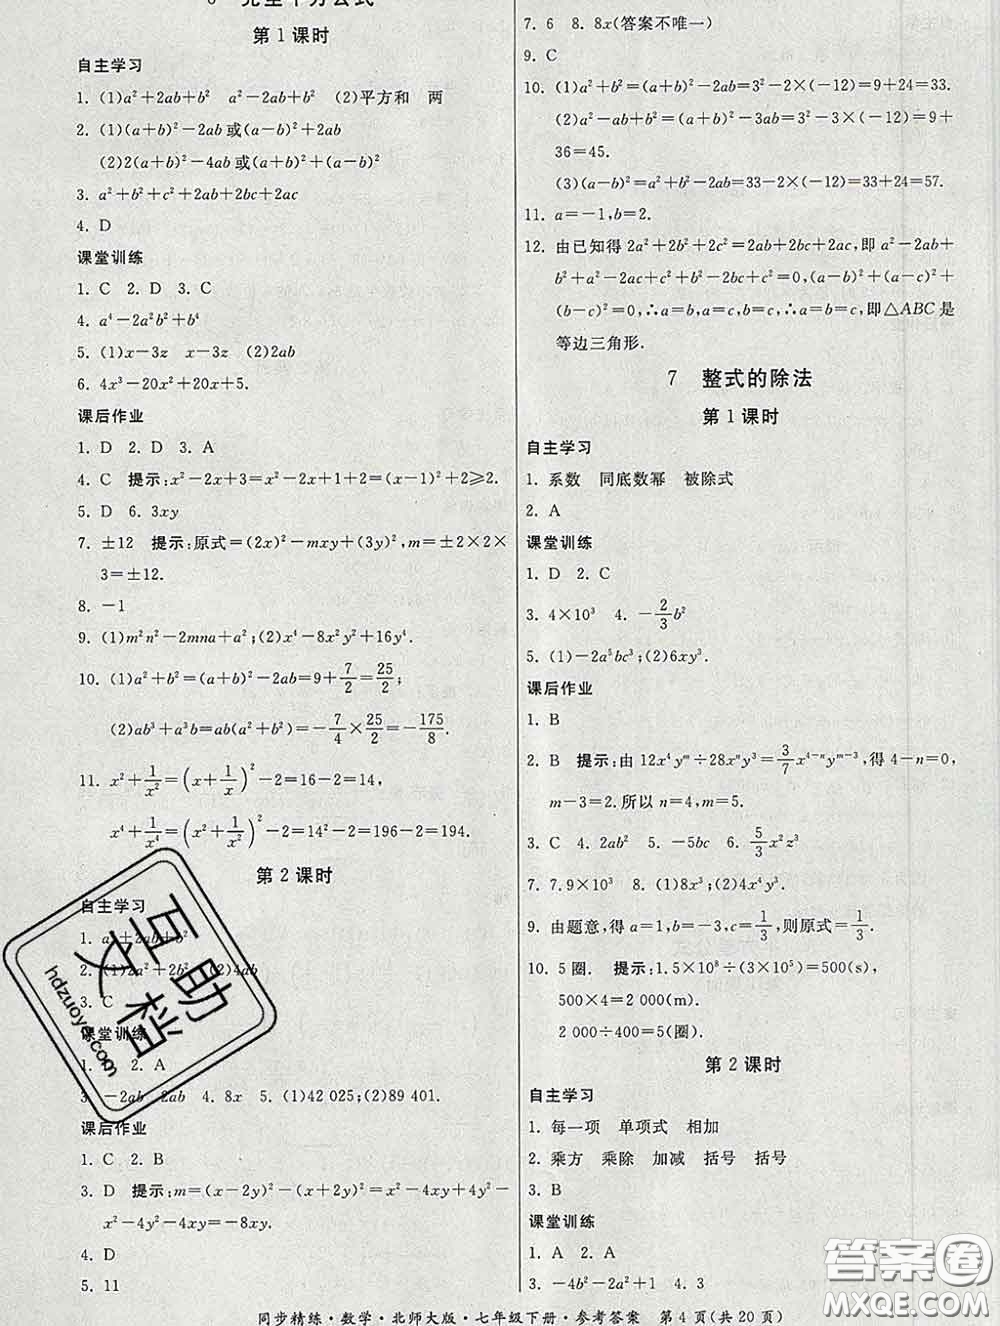 6 完全平方公式
第 1 课时
自主学习
1. (1)a²+2ab+b² a²-2ab+b² (2)平方和 两
2. (1)(a+b)²-2ab或(a-b)²+2ab
(2)2(a+b)²-4ab或(a+b)²+(a-b)²
3. a²+b²+c²+2ab+2bc+2ac
4. D
课堂训练
1. C 2. D 3. C
4. a⁴-2a²b²+b⁴
5. (1)x-3z x-3z (2)2ab
6. 4x³-20x²+20x+5.
课后作业
1. D 2. D 3. A
4. C 提示:x²-2x+3=x²-2x+1+2=(x-1)²+2≥2.
5. D 6. 3xy
7. ±12 提示:原式=(2x)²-mxy+(3y)²,m=±2×2×
3=±12.
8. -1
9. (1)m²n²-2mna+a²;(2)x⁴-8x²y²+16y⁴.
10. (1)a²+b²=(a+b)²-2ab=9+7/2=25/2;
(2)ab³+a³b=ab(a²+b²)=-7/4×25/2=-175/8.
11. x²+1/x²=(x+1/x)²-2=16-2=14,
x⁴+1/x⁴=(x²+1/x²)²-2=14²-2=196-2=194.
第 2 课时
自主学习
1. a²+2ab+b²
2. (1)2a²+2b² (2)4ab
3. C
课堂训练
2. A
3. -2ab 2ab 4. 8x 5. (1)42 025;(2)89 401.
课后作业
1. C 2. B
3. D 提示:m=(x-2y)²-(x+2y)²=x²-4xy+4y²-
x²-4y²-4xy=-8xy.
4. D
5. 11
7. 6 8. 8x(答案不唯一)
9. C
10. (1)a²+b²=(a+b)²-2ab=3²-2×(-12)=9+24=33.
(2)a²-ab+b²=(a+b)²-3ab=3²-3×(-12)=9+
36=45.
(3)(a-b)²=a²+b²-2ab=33-2×(-12)=33+24=57.
11. a=-1,b=2.
12. 由已知得2a²+2b²+2c²=2ab+2bc+2ac,即a²-2ab+
b²+a²-2ac+c²+b²-2bc+c²=0,(a-b)²+(a-c)²+
(b-c)²=0,∴a=b,a=c,b=c,∴a=b=c,即△ABC是
等边三角形.
7 整式的除法
第 1 课时
自主学习
1. 系数 同底数幂 被除式
2. A
课堂训练
1. D 2. C
3. 4×10³ 4. -2/3b²
5. (1)-2a⁵bc³;(2)6xy³.
课后作业
1. B
2. B 提示:由12x⁴yᵐ÷28xⁿy³=3/7x⁴⁻ⁿyᵐ⁻³,得4-n=0,
m-3=2.所以n=4,m=5.
3. C 4. 2ab² 5. -5bc 6. 5/3x²z³
7. 7.9×10³ 8. (1)8x³;(2)4x⁴y³.
9. 由题意,得a=1,b=-3,c=1/3,则原式=1/3.
10. 5圈. 提示:1.5×10⁸÷(3×10⁵)=500(s),
500×4=2 000(m).
2 000÷400=5(圈).
第 2 课时
自主学习
1. 每一项 单项式 相加
2. 乘方 乘除 加减 括号 括号
3. B
课堂训练
1. A 2. A
3. -4b²-2a²+1 4. 3
同步精练·数学·北师大版·七年级下册·参考答案 第 4 页(共 20 页)
互助文档
hdzuoye.com
答案圈
MXQE.COM